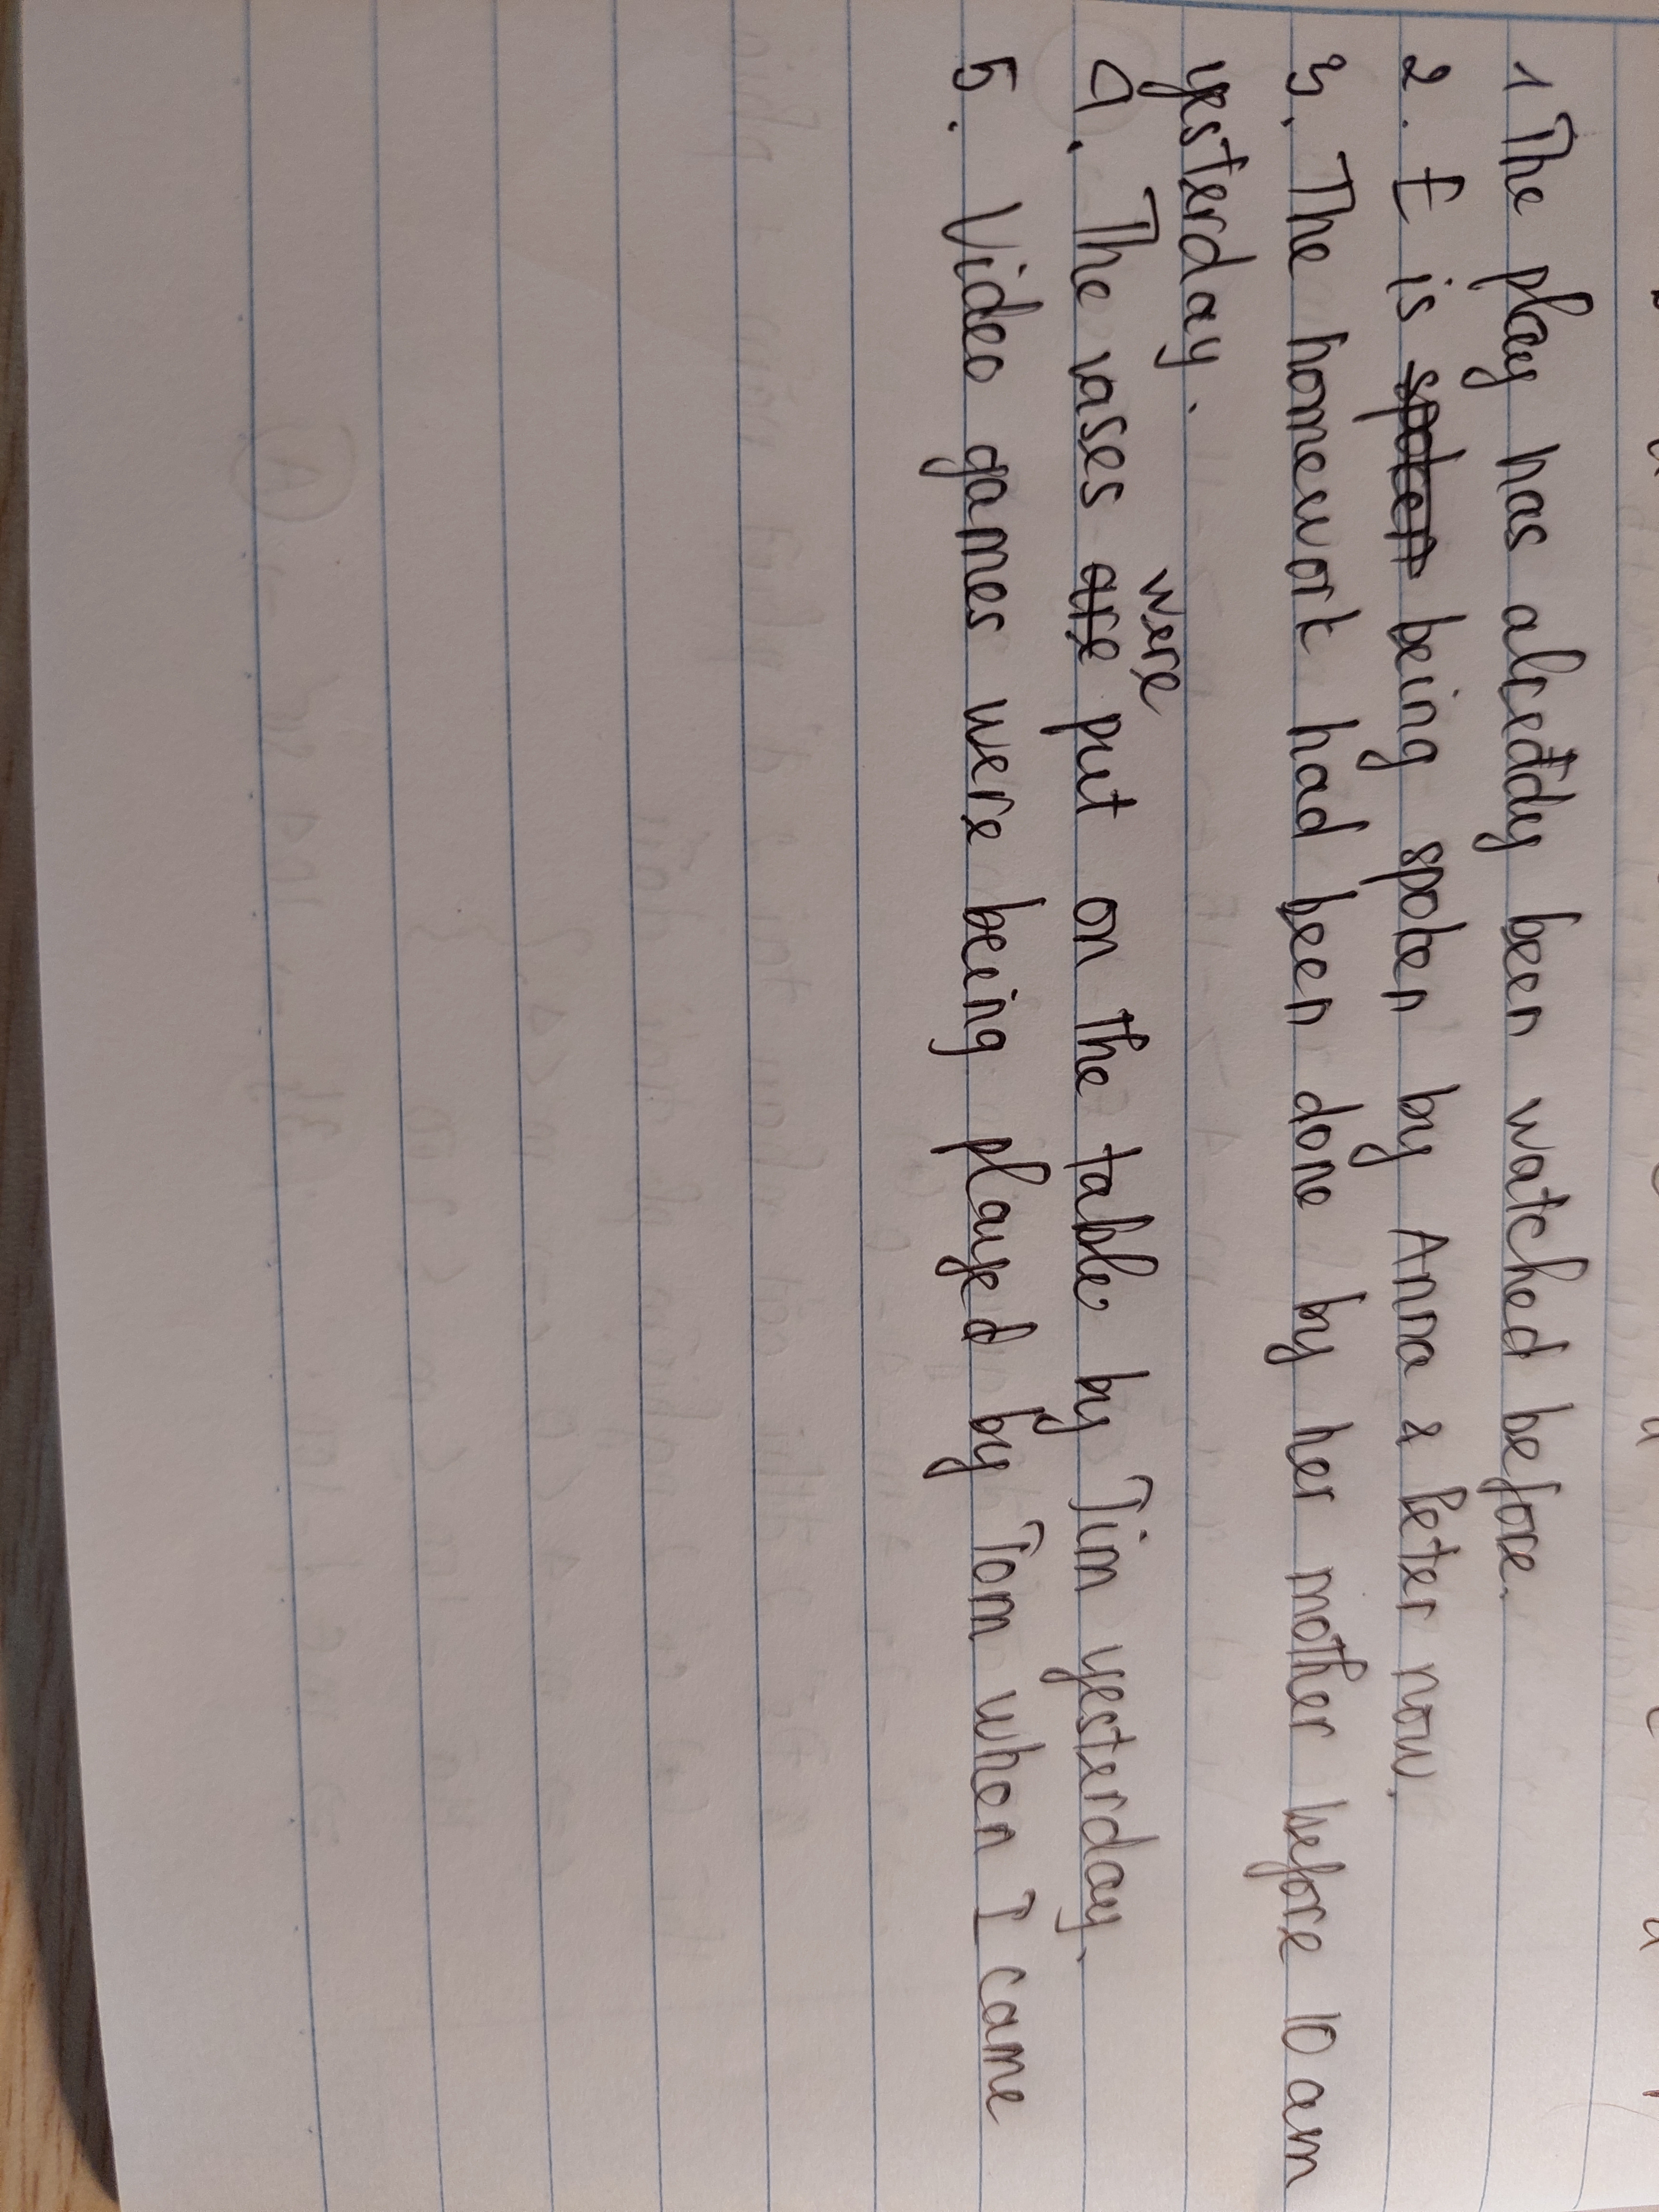 1 The play has already been watched before.
2. E is spoken being spoken by Anna & Peter now.
3. The homework had been done by her mother before 10 am
yesterday.
were
4. The vases are put on the table by Tim yesterday.
5. Video games were being played by Tom when I came